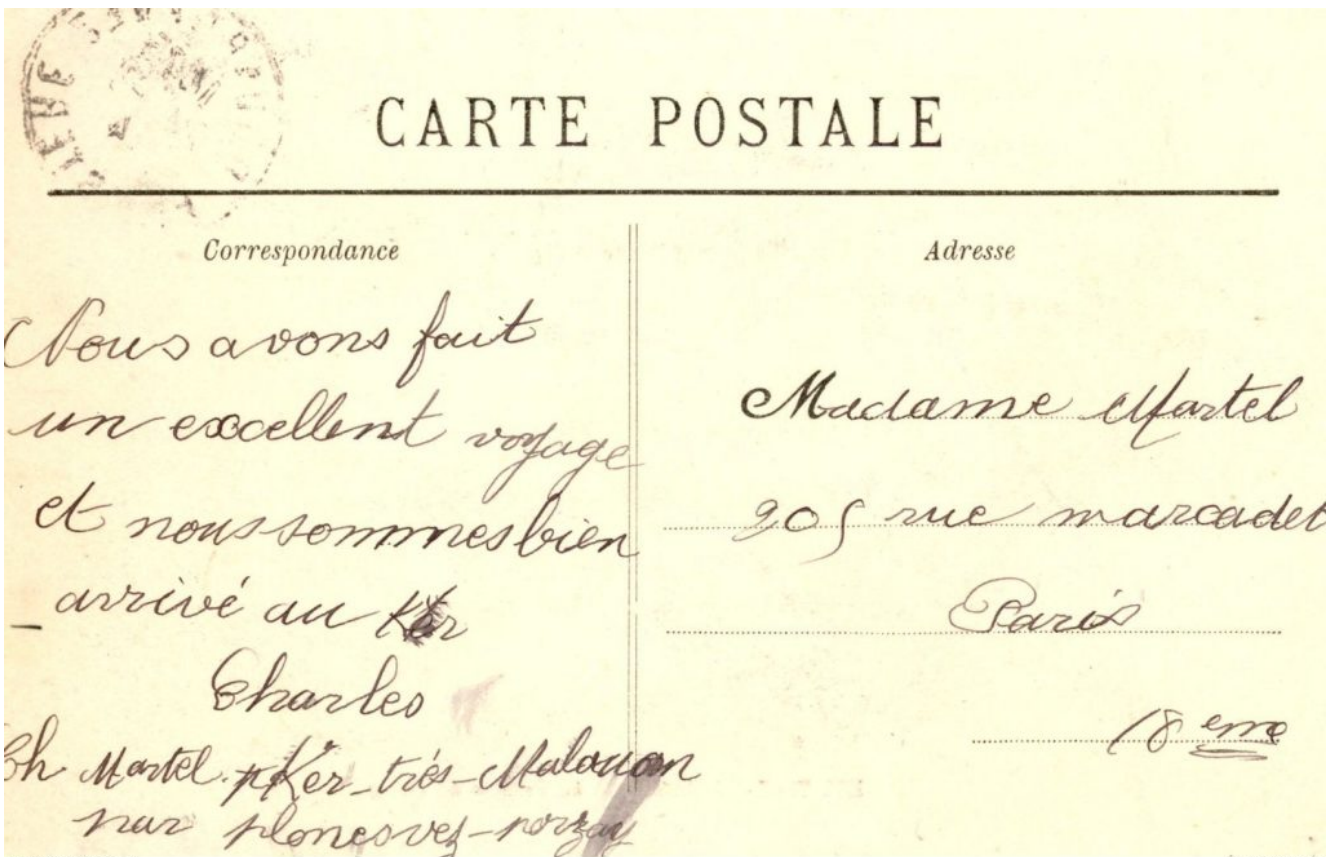 CARTE POSTALE
Correspondance
Nous avons fait
un excellent voyage
et nous sommes bien
arrivé au Ker
Charles
Ch Martel Ker-très-Malaouen
par plonesvez-porzay
Adresse
Madame Martel
205 rue marcadet
Paris
18 eme